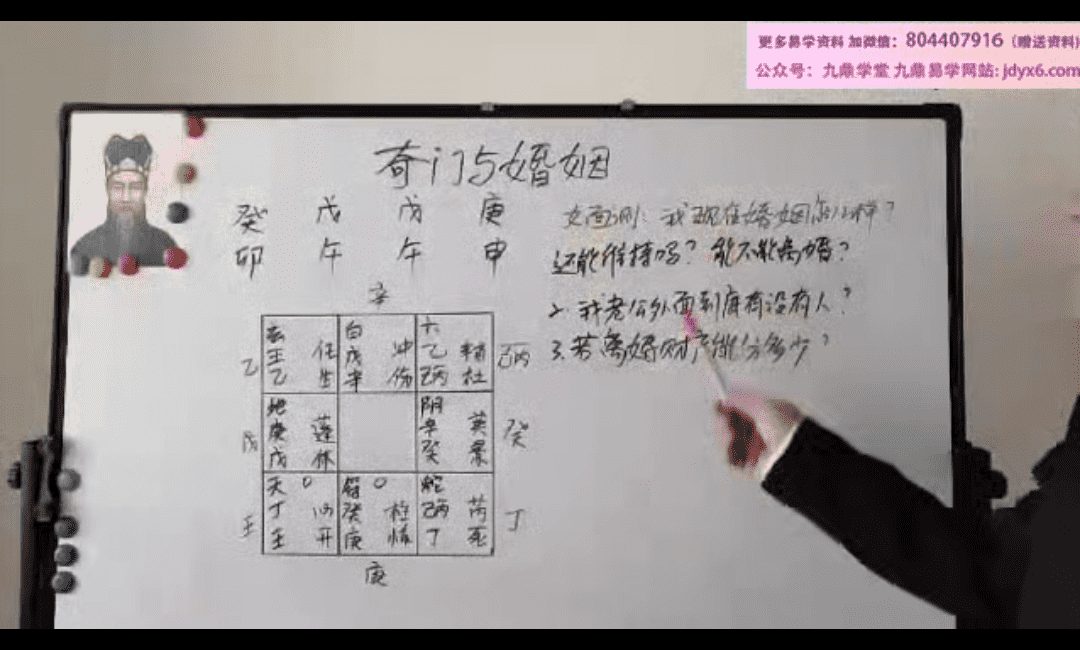 更多易学资料 加微信：804407916（赠送资料）
公众号：九鼎学堂 九鼎易学网站: jdyx6.com
奇门与婚姻
癸 戊 戊 庚
卯 午 午 申
女 测：我现在婚姻怎么样？
还能维持吗？能不能离婚？
2. 我老公外面到底有没有人？
3. 若离婚财产能分多少？
辛
玄 白 六
壬 任 戊 冲 乙 辅
乙 乙 生 辛 伤 己丙 杜 己丙
地 阴
庚 蓬 辛 英
戊 戊 休 癸 景 癸
天 O 符 O 蛇
丁 心 癸 柱 己丙 芮
壬 壬 开 庚 惊 丁 死 丁
庚